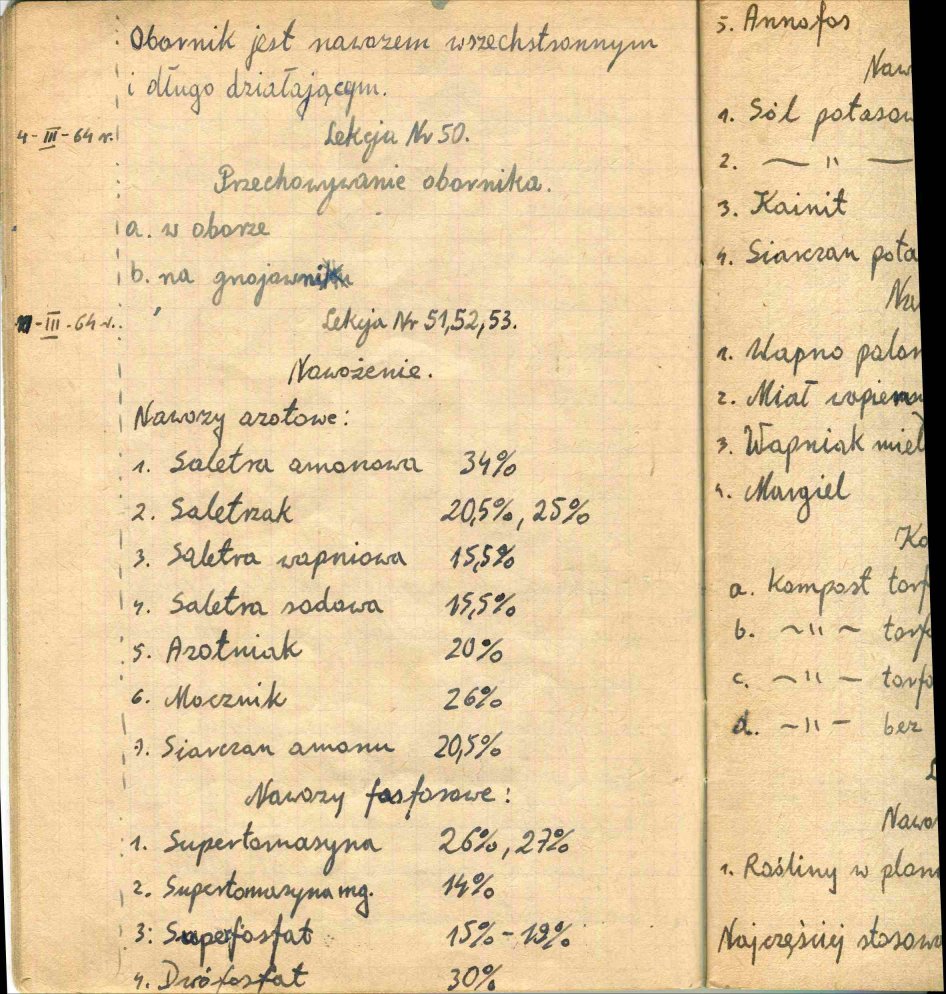 Obornik jest nawozem wszechstronnym
i długo działającym.
4-III-64 r. Lekcja Nr 50.
Przechowywanie obornika.
a. w oborze
b. na gnojowniku
11-III-64 r. Lekcja Nr 51, 52, 53.
Nawożenie.
Nawozy azotowe:
1. Saletra amonowa 34%
2. Saletrzak 20,5%, 25%
3. Saletra wapniowa 15,5%
4. Saletra sodowa 15,5%
5. Azotniak 20%
6. Mocznik 26%
7. Siarczan amonu 20,5%
Nawozy fosforowe:
1. Supertomasyna 26%, 27%
2. Supertomasyna mg. 14%
3. Superfosfat 15%-19%
4. Dwófosfat 30%
5. Annofos
Naw
1. Sól potasow
2. — " —
3. Kainit
4. Siarczan pota
Na
1. Wapno palon
2. Miał wapienn
3. Wapniak miel
4. Margiel
Ko
a. Kompost torf
b. ~ " ~ torf
c. ~ " ~ torfo
d. ~ " ~ bez
L
Nawo
1. Rośliny w plon
Najczęściej stosow